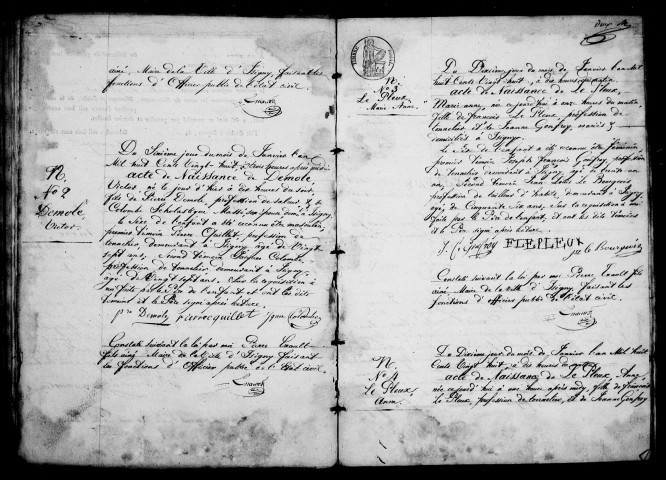 ainé, Maire de la Ville d'Isigny, faisant les
fonctions d'Officier public de l'état civil.
N.
No 2
Demole,
Victor.
Du Sixième jour du mois de Janvier l'an
Mil huit Cent Vingt-huit, à trois heures après midi
acte de Naissance de Demole
Victor, né le jour d'hier à dix heures du soir,
fils de Pierre Demole, profession de
Colombe Scholastique
le sexe de l'enfant a été reconnu être masculin,
premier témoin Pierre Quillet, profession de
tonnelier, demeurant à Isigny, âgé de Vingt
sept ans, Second témoin Colombe
profession de tonnelier demeurant à Isigny,
âgé de Vingt sept ans. Sur la réquisition à
moi faite par le Père de l'enfant et ont les dits
témoins et le Père signé après lecture.
pre Demole pierre quillet
Constaté suivant la loi par moi Pierre
fils ainé, Maire de la Ville d'Isigny faisant
les fonctions d'Officier public de l'état civil.
N.
No 3
Le Pleux,
Marie Anne.
Du Dixième jour du mois de Janvier l'an Mil
huit Cent Vingt huit, à dix heures du matin
acte de Naissance de Le Pleux,
Marie anne, née ce jourd'hui à heures du matin
fille de François Le Pleux, profession de
tonnelier et de Jeanne Gonfroy, mariés &
domiciliés à Isigny.
Le Sexe de l'enfant a été reconnu être féminin
premier témoin Joseph François Gonfroy, profession
de tonnelier demeurant à Isigny, âgé de trente un
ans, Second témoin Jean Louis Le Bourgeois
profession de tailleur d'habits, demeurant à Isigny
âgé de Cinquante Six ans, Sur la réquisition à moi
faite par le Père de l'enfant, et ont les dits témoins
et le Père signé après lecture.
J. f. Gonfroy FLEPLEUX le Bourgeois
Constaté suivant la loi par moi Pierre fils
ainé, Maire de la Ville d'Isigny, faisant les
fonctions d'officier public de l'état civil.
N.
No 4
Le Pleux,
Anne.
Du Dixième jour du mois de Janvier l'an Mil huit
Cent Vingt huit, à dix heures du matin
acte de Naissance de Le Pleux, Anne,
née ce jourd'hui à une heure après midy, fille de françois
Le Pleux, profession de tonnelier, et de Jeanne Gonfroy